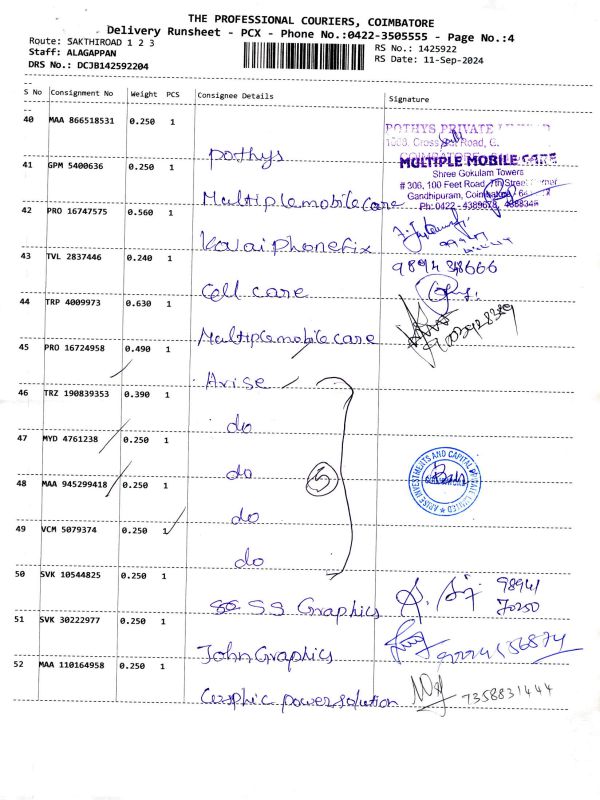 THE PROFESSIONAL COURIERS, COIMBATORE
Delivery Runsheet - PCX - Phone No.:0422-3505555 - Page No.:4
Route: SAKTHIROAD 1 2 3
RS No.: 1425922
Staff: ALAGAPPAN
RS Date: 11-Sep-2024
DRS No.: DCJB142592204
S No Consignment No Weight PCS Consignee Details Signature
40 MAA 866518531 0.250 1
POTHYS PRIVATE
Road,
pothys
MULTIPLE MOBILE CARE
Shree Gokulam Towers
41 GPM 5400636 0.250 1
# 306, 100 Feet Road, 7th Street Corner
Gandhipuram, Coimbatore
Multiplemobilecare
Ph: 0422 - 4389678,
42 PRO 16747575 0.560 1
Kovaiphonefix
43 TVL 2837446 0.240 1
Cell care
44 TRP 4009973 0.630 1
Multiplemobilecare
45 PRO 16724958 0.490 1
Arise
46 TRZ 190839353 0.390 1
do
47 MYD 4761238 0.250 1
do
5
48 MAA 945299418 0.250 1
ARISE INVESTMENTS AND CAPITAL PRIVATE LIMITED
do
49 VCM 5079374 0.250 1
do
50 SVK 10544825 0.250 1
SS Graphics
98941
70250
51 SVK 30222977 0.250 1
John Graphics
52 MAA 110164958 0.250 1
powersolution
7358831444